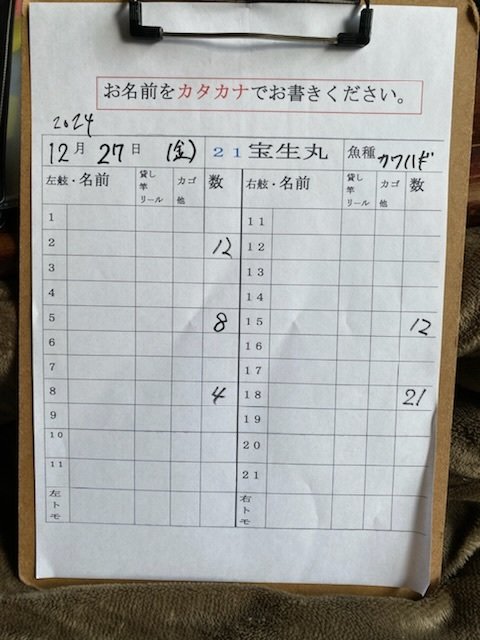 お名前をカタカナでお書きください。
2024
12月 27日 (金) 21宝生丸 魚種 カワハギ
左舷・名前 貸し竿リール カゴ他 数 右舷・名前 貸し竿リール カゴ他 数
1 11
2 12 12
3 13
4 14
5 8 15 12
6 16
7 17
8 4 18 21
9 19
10 20
11 21
左トモ 右トモ